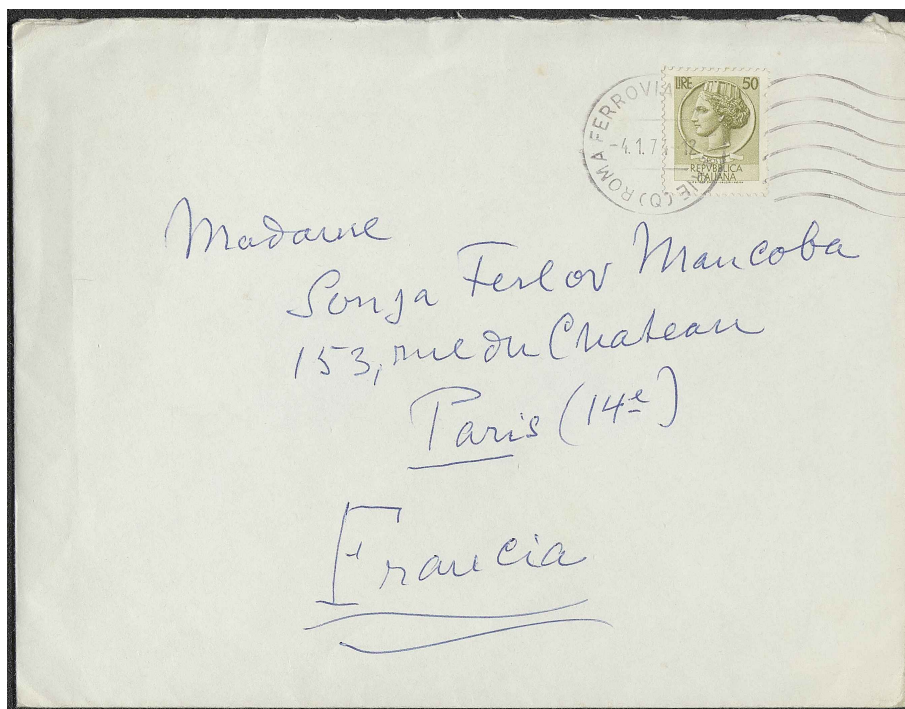 ROMA FERROVIA
-4.1.7 -12
LIRE 50
REPVBBLICA
ITALIANA
Madame
Sonja Ferlov Mancoba
153, rue du Chateau
Paris (14e)
Francia